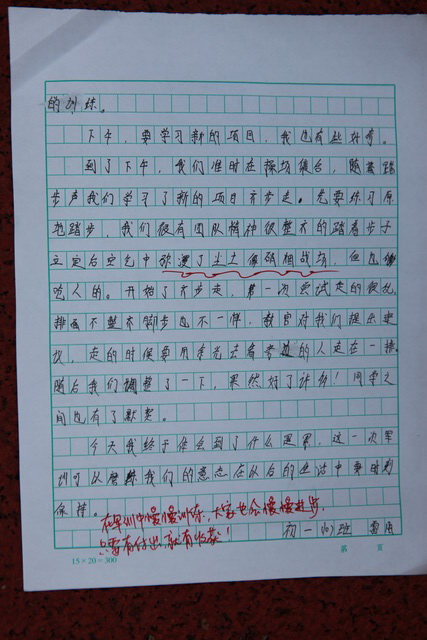 的训练。
下午，要学习新的项目，我还有些好奇。
到了下午，我们准时在操场集合，随着踏
步声我们学习了新的项目齐步走。先要练习原
地踏步，我们很有团队精神很整齐的踏着步子
立定后空气中弥漫了尘土像硝烟战场，但也
吃人的。开始了齐步走，第一次尝试走的很乱，
排面不整齐脚步也不一样，教官对我们提出要
求，走的时候要用余光去看旁边的人走在一排。
随后我们调整了一下，果然好了许多！同学之
间也有了默契。
今天我终于体会到了什么是军，这一次军
训可以磨练我们的意志在以后的生活中要时刻
保持。
在军训中慢慢训练，大家也会慢慢进步，
只要有付出，就有收获！
初一(10)班
第 页
15×20=300